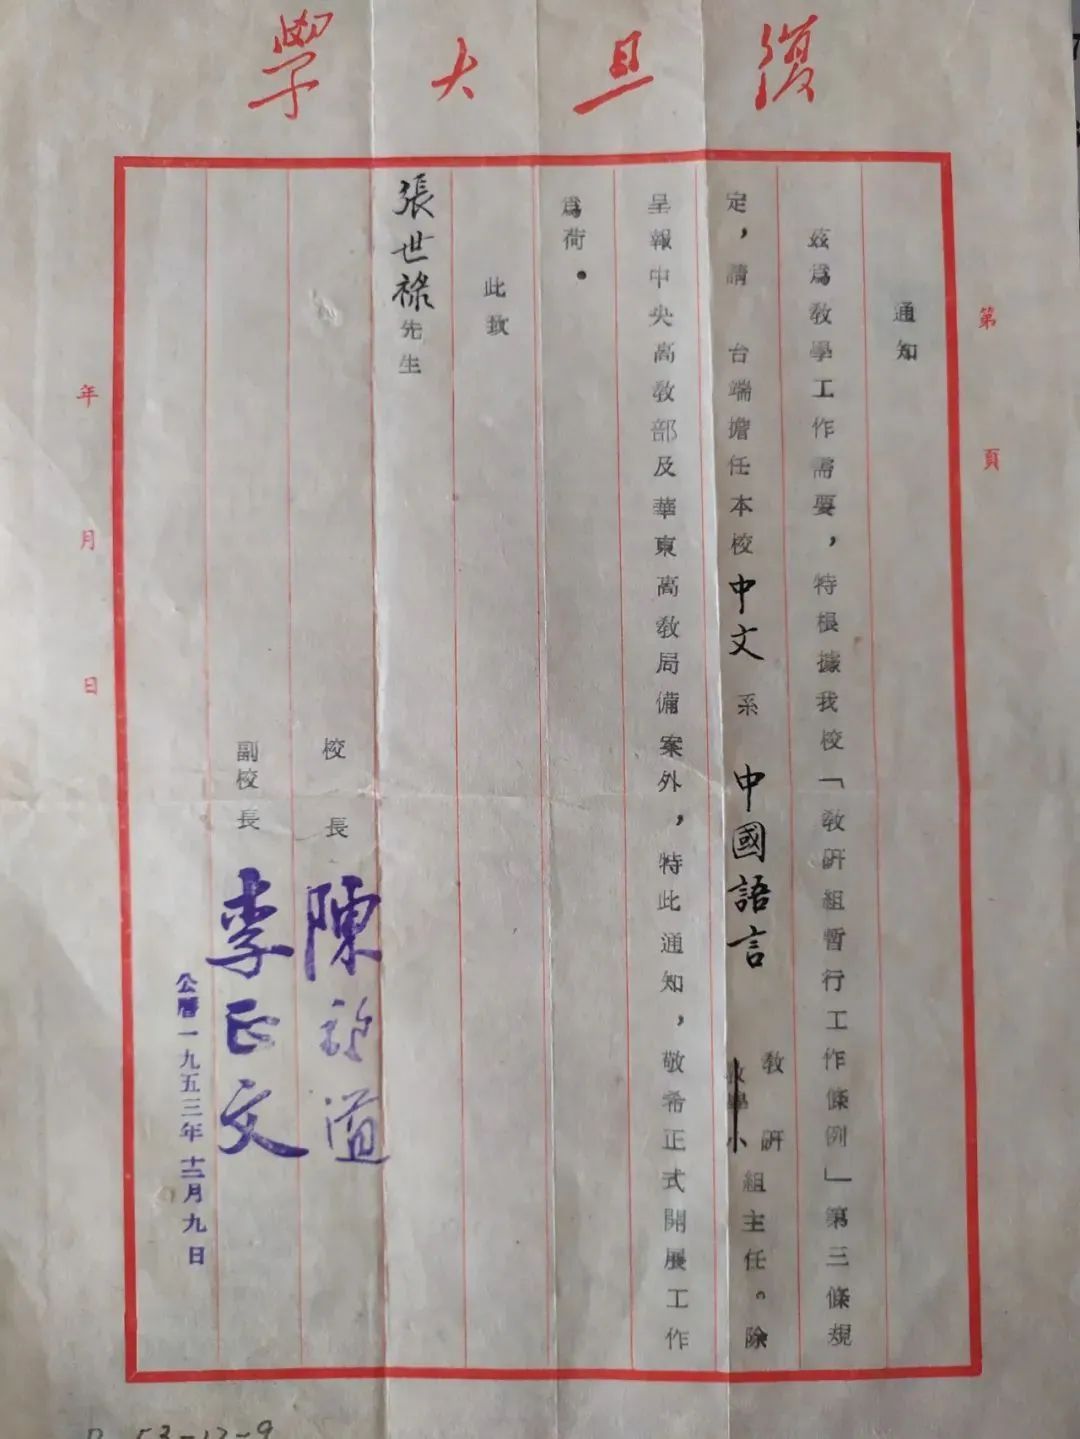 復旦大學
第 頁
通知
茲為教學工作需要，特根據我校「教研組暫行工作條例」第三條規
定，請 台端擔任本校中文系 中國語言 教研組主任。除
教學小
呈報中央高教部及華東高教局備案外，特此通知，敬希正式開展工作
為荷。
此致
張世祿先生
校長 陳望道
副校長 李正文
公曆一九五三年十二月九日
年 月 日
53-12-9